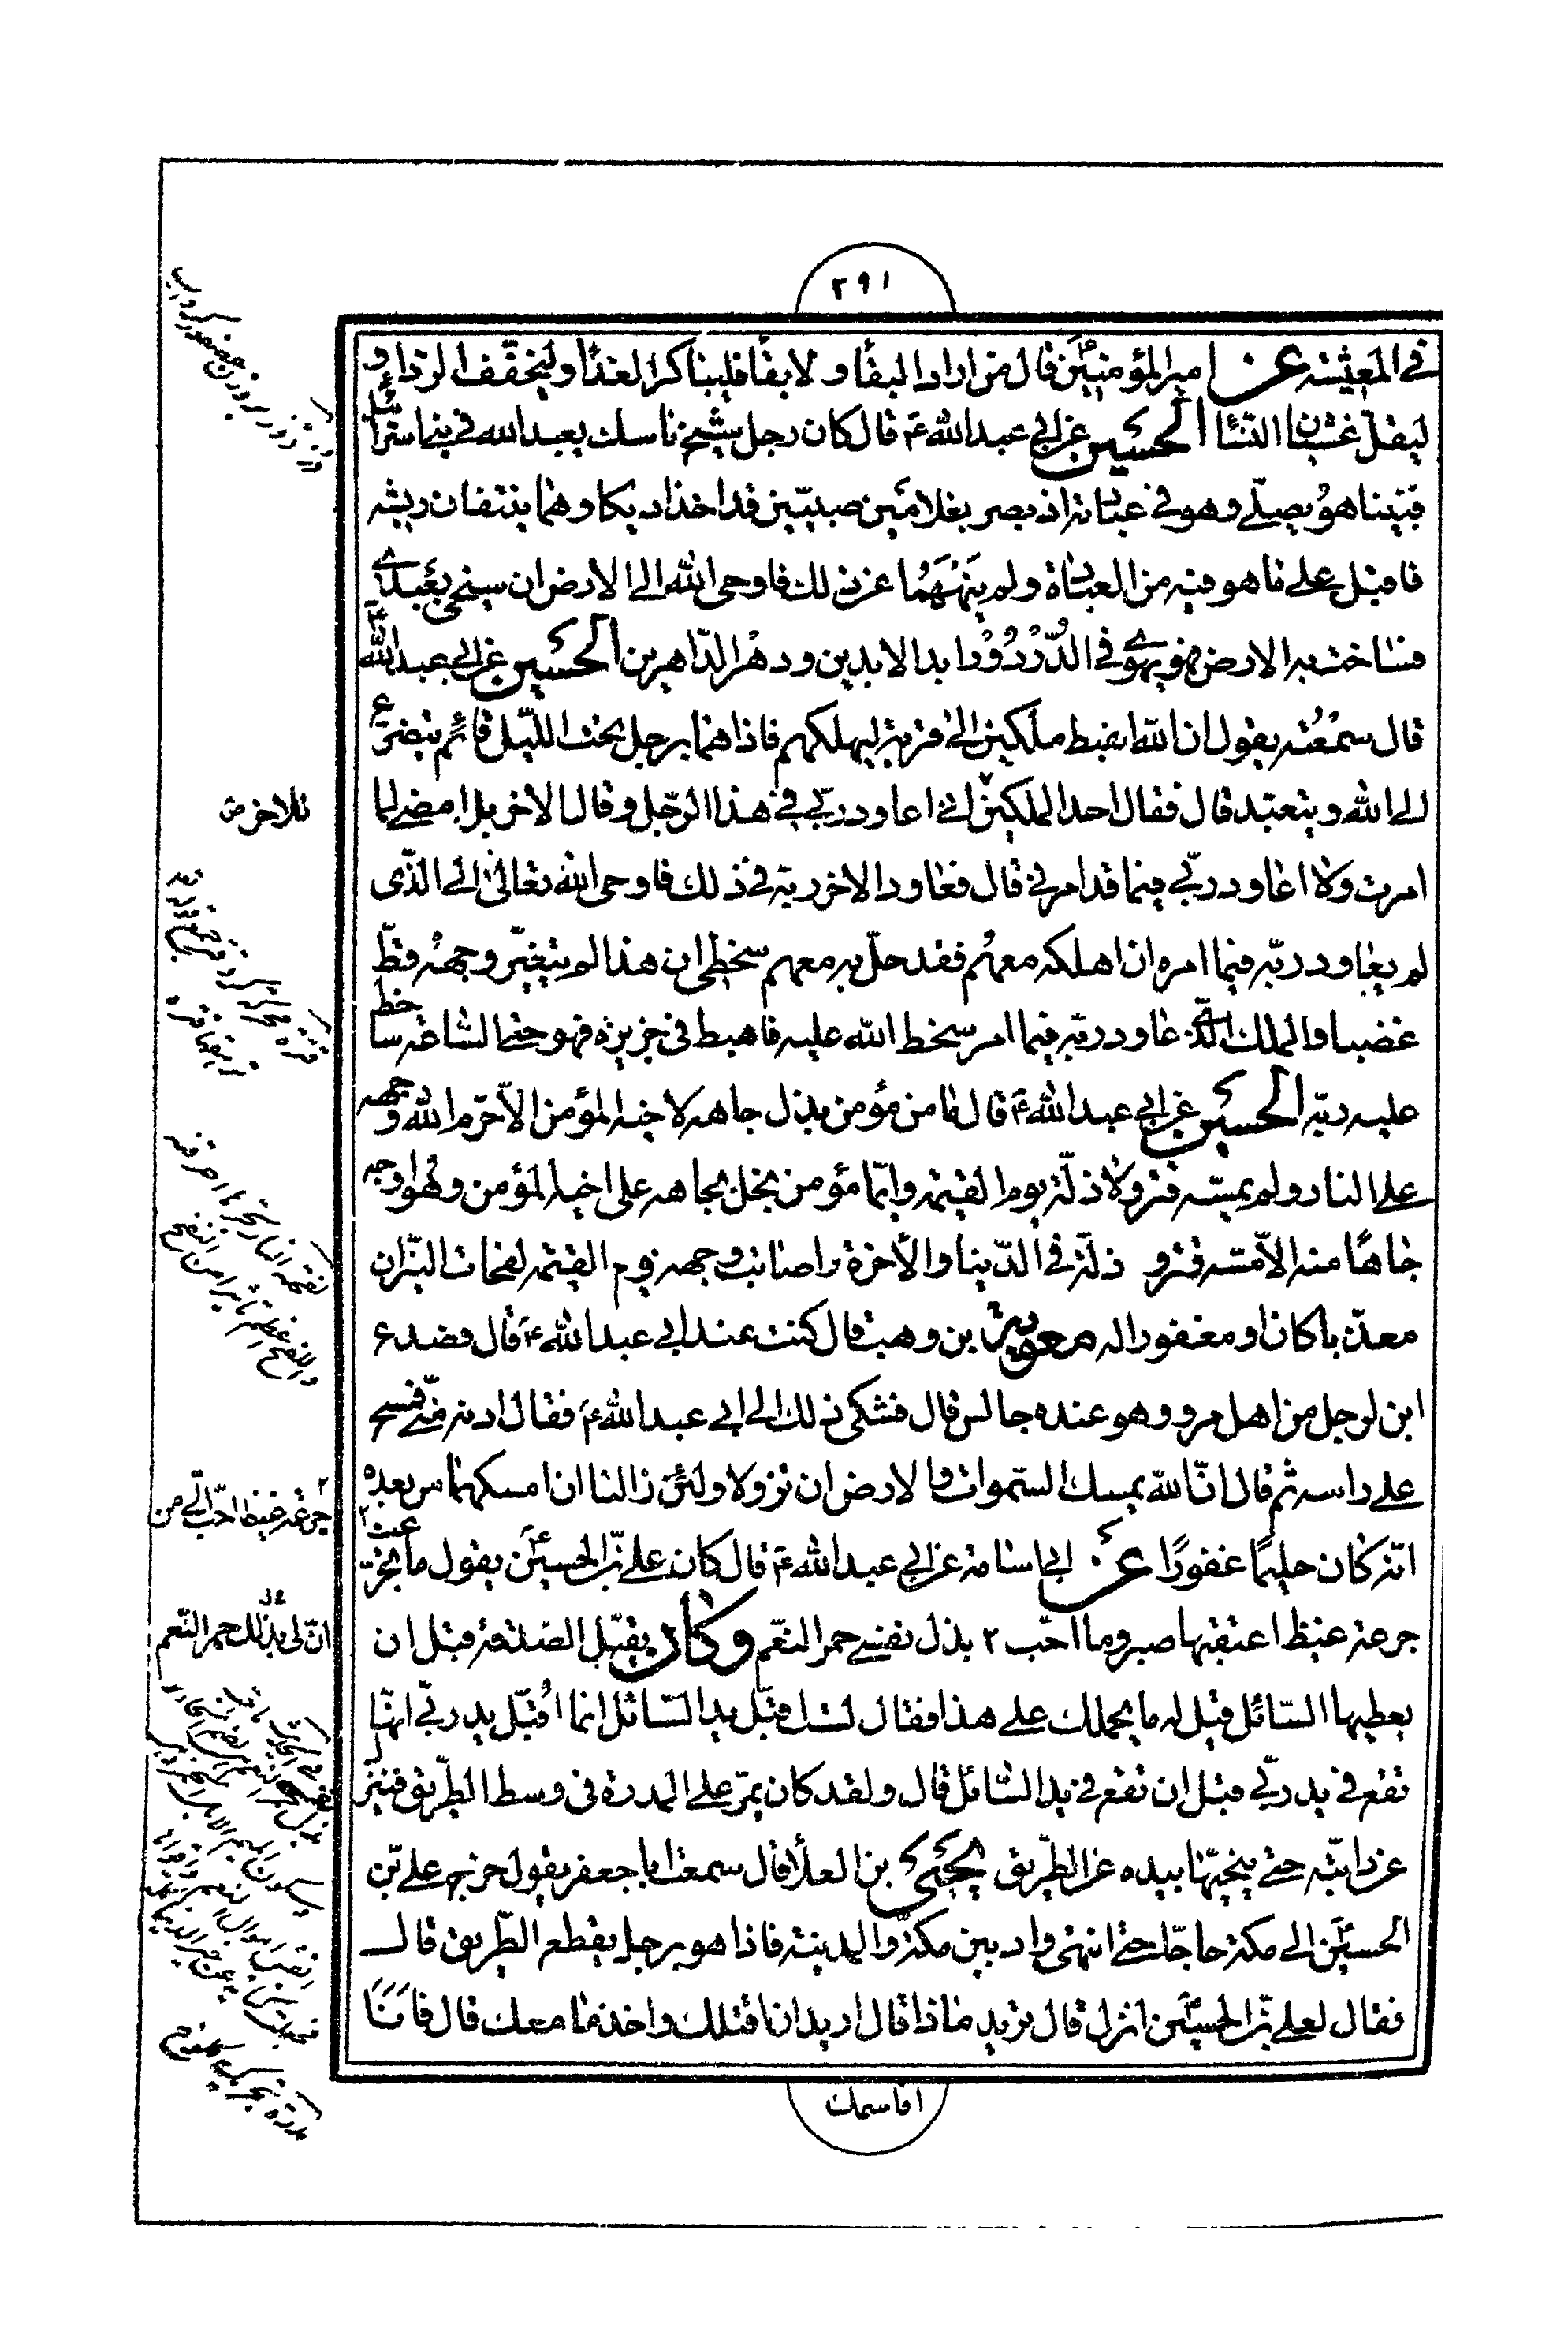 ٢٩١
في المعيشة عن امير المؤمنينؑ قال من اراد البقاء ولا بقاء فليباكر الغداء وليخفف الرداء و
ليقل غشيان النساء الحسين عن ابي عبد الله ع قال كان رجل شيخ ناسك يعبد الله في بني اسرائيل
فبينا هو يصلي وهو في عبادته اذ بصر بغلامين صبيين قد اخذا ديكا وهما ينتفان ريشه
فاقبل على ما هو فيه من العبادة ولم ينههما عن ذلك فاوحى الله الى الارض ان سيخي بعبدي
فساخت به الارض فهو يهوي في الدردور ابد الابدين ودهر الداهرين الحسين عن ابي عبد الله ع
قال سمعته يقول ان الله اهبط ملكين الى قرية ليهلكهم فاذا هما برجل تحت الليل قائم يتضرع
الى الله ويتعبد قال فقال احد الملكين اني اعاود ربي في هذا الرجل وقال الاخر بل امضي لما
امرت ولا اعاود ربي فيما قد امرني قال فعاود الاخر ربه في ذلك فاوحى الله تعالى الى الذي
لم يعاود ربه فيما امره ان اهلكه معهم فقد حل به معهم سخطي ان هذا لم يتغير وجهه قط
غضبا والملك الذي عاود ربه فيما امر سخط الله عليه فاهبط في جزيرة فهو حتى الساعة ساخط
عليه ربه الحسين عن ابي عبد الله ع قال ما من مؤمن بذل جاهه لاخيه المؤمن الا حرم الله وجهه
على النار ولم يمسه قتر ولا ذلة يوم القيمة وايما مؤمن بخل بجاهه على اخيه المؤمن وهو اوجه
جاها منه الا مسه قتر و ذلة في الدنيا والاخرة واصابت وجهه يوم القيمة لفحات النيران
معذبا كان او مغفورا له معوية بن وهب قال كنت عند ابي عبد الله ع قال فصدع
ابن لرجل من اهل مرو وهو عنده جالس قال فشكى ذلك الى ابي عبد الله ع فقال ادنه مني فمسح
على راسه ثم قال ان الله يمسك السموات والارض ان تزولا ولئن زالتا ان امسكهما من بعده
انه كان حليما غفورا عن ابي اسامة عن ابي عبد الله ع قال كان علي بن الحسينؑ يقول ما تجرعت
جرعة غيظ اعقبها صبر وما احب ٢ بذل نفسي حمر النعم وكان يقبل الصدقة قبل ان
يعطيها السائل قيل له ما يحملك على هذا فقال لست اقبل يد السائل انما اقبل يد ربي انها
تقع في يد ربي قبل ان تقع في يد السائل قال ولقد كان يمر على المدرة في وسط الطريق فينزل
عن دابته حتى ينحيها بيده عن الطريق يحيى بن العلا قال سمعت ابا جعفر يقول خرج علي بن
الحسينؑ الى مكة حاجا حتى انتهى واد بين مكة والمدينة فاذا هو برجل يقطع الطريق قال
فقال لعلي بن الحسينؑ انزل قال تريد ماذا قال اريد ان اقتلك واخذ ما معك قال فانا
اقاسمك
للاخر ص
٢ جرعة غيظ احب الي من
ان لي بذلك حمر النعم